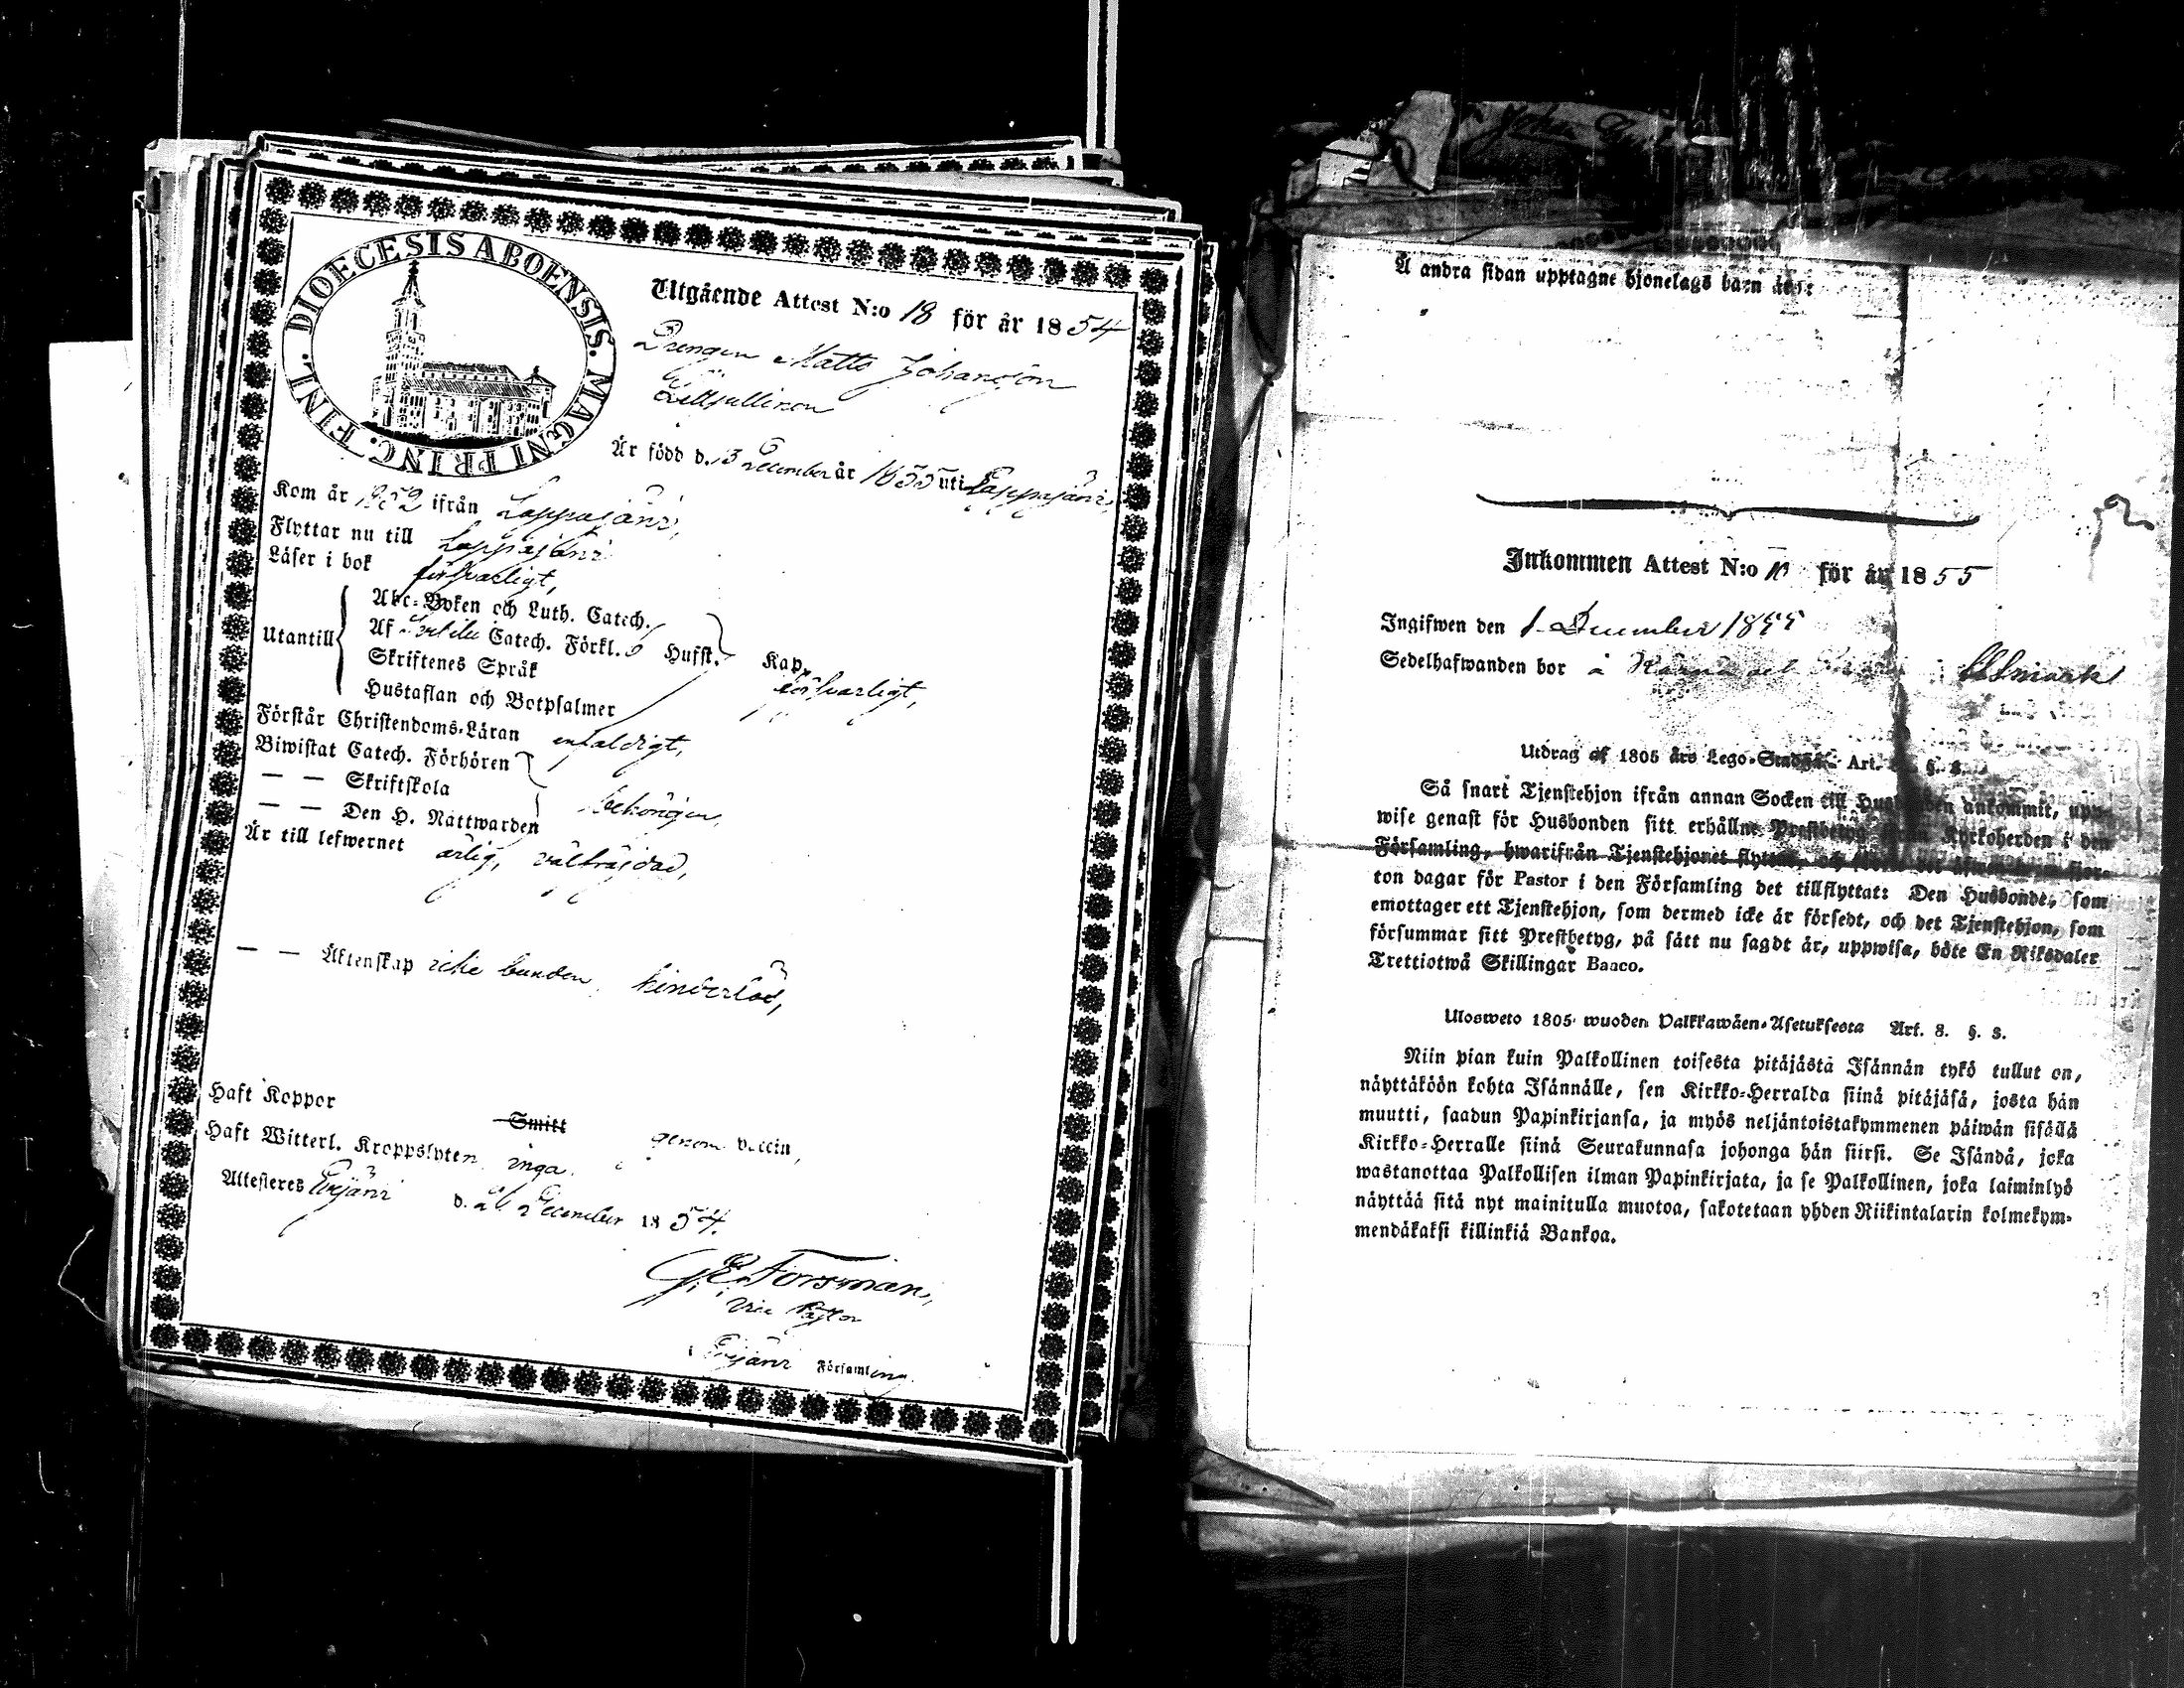 DIOECESIS ABOENSIS. MAGNI PRINC. FINL.
Utgående Attest N:o 18 för år 1854
Drengen Matts Johansson
Är född d. 13 December år 1833 uti Lappajärvi
Kom år 1852 ifrån Lappajärvi,
Flyttar nu till Lappajärvi
Läser i bok försvarligt,
Utantill
Abc-Boken och Luth. Catech.
Af Catech. Förkl. Hufst. Kap.
Skriftenes Språk försvarligt,
Hustaflan och Botpsalmer
Förstår Christendoms-Läran enfaldigt,
Biwistat Catech. Förhören
— — Skriftskola behörigen,
— — Den H. Nattwarden
Är till lefwernet ärlig, välfräjdad,
— — Äktenskap icke bunden, hinderlös,
Haft Koppor Smitt genom Vaccin,
Haft Witterl. Kroppslyten inga.
Attesteres Evijärvi d. December 1854.
G. E. Forsman,
Vice Pastor
Evijärvi Församling.
Å andra sidan upptagne hjonelags barn äro:
Inkommen Attest N:o 10 för år 1855
Ingifwen den 1 December 1855
Sedelhafwanden bor å
Utdrag af 1805 års Lego-Stadga Art. §.
Så snart Tjenstehjon ifrån annan Socken till Husbonden ankommit, upp-
wise genast för Husbonden sitt erhållne Prestbetyg Kyrkoherden i den
Församling, hwarifrån Tjenstehjonet och fjor-
ton dagar för Pastor i den Församling det tillflyttat: Den Husbonde, som
emottager ett Tjenstehjon, som dermed icke är försedt, och det Tjenstehjon, som
försummar sitt Prestbetyg, på sätt nu sagdt är, uppwisa, böte En Riksdaler
Trettiotwå Skillingar Banco.
Ulosweto 1805 wuoden Palkkawäen-Asetuksesta Art. 8. §. 3.
Niin pian kuin Palkollinen toisesta pitäjästä Isännän tykö tullut on,
näyttäköön kohta Isännälle, sen Kirkko-Herralda siinä pitäjäsä, josta hän
muutti, saadun Papinkirjansa, ja myös neljäntoistakymmenen päiwän sisällä
Kirkko-Herralle siinä Seurakunnasa johonga hän siirsi. Se Isändä, joka
wastanottaa Palkollisen ilman Papinkirjata, ja se Palkollinen, joka laiminlyö
näyttää sitä nyt mainitulla muotoa, sakotetaan yhden Riikintalarin kolmekym-
mendäkaksi killinkiä Bankoa.